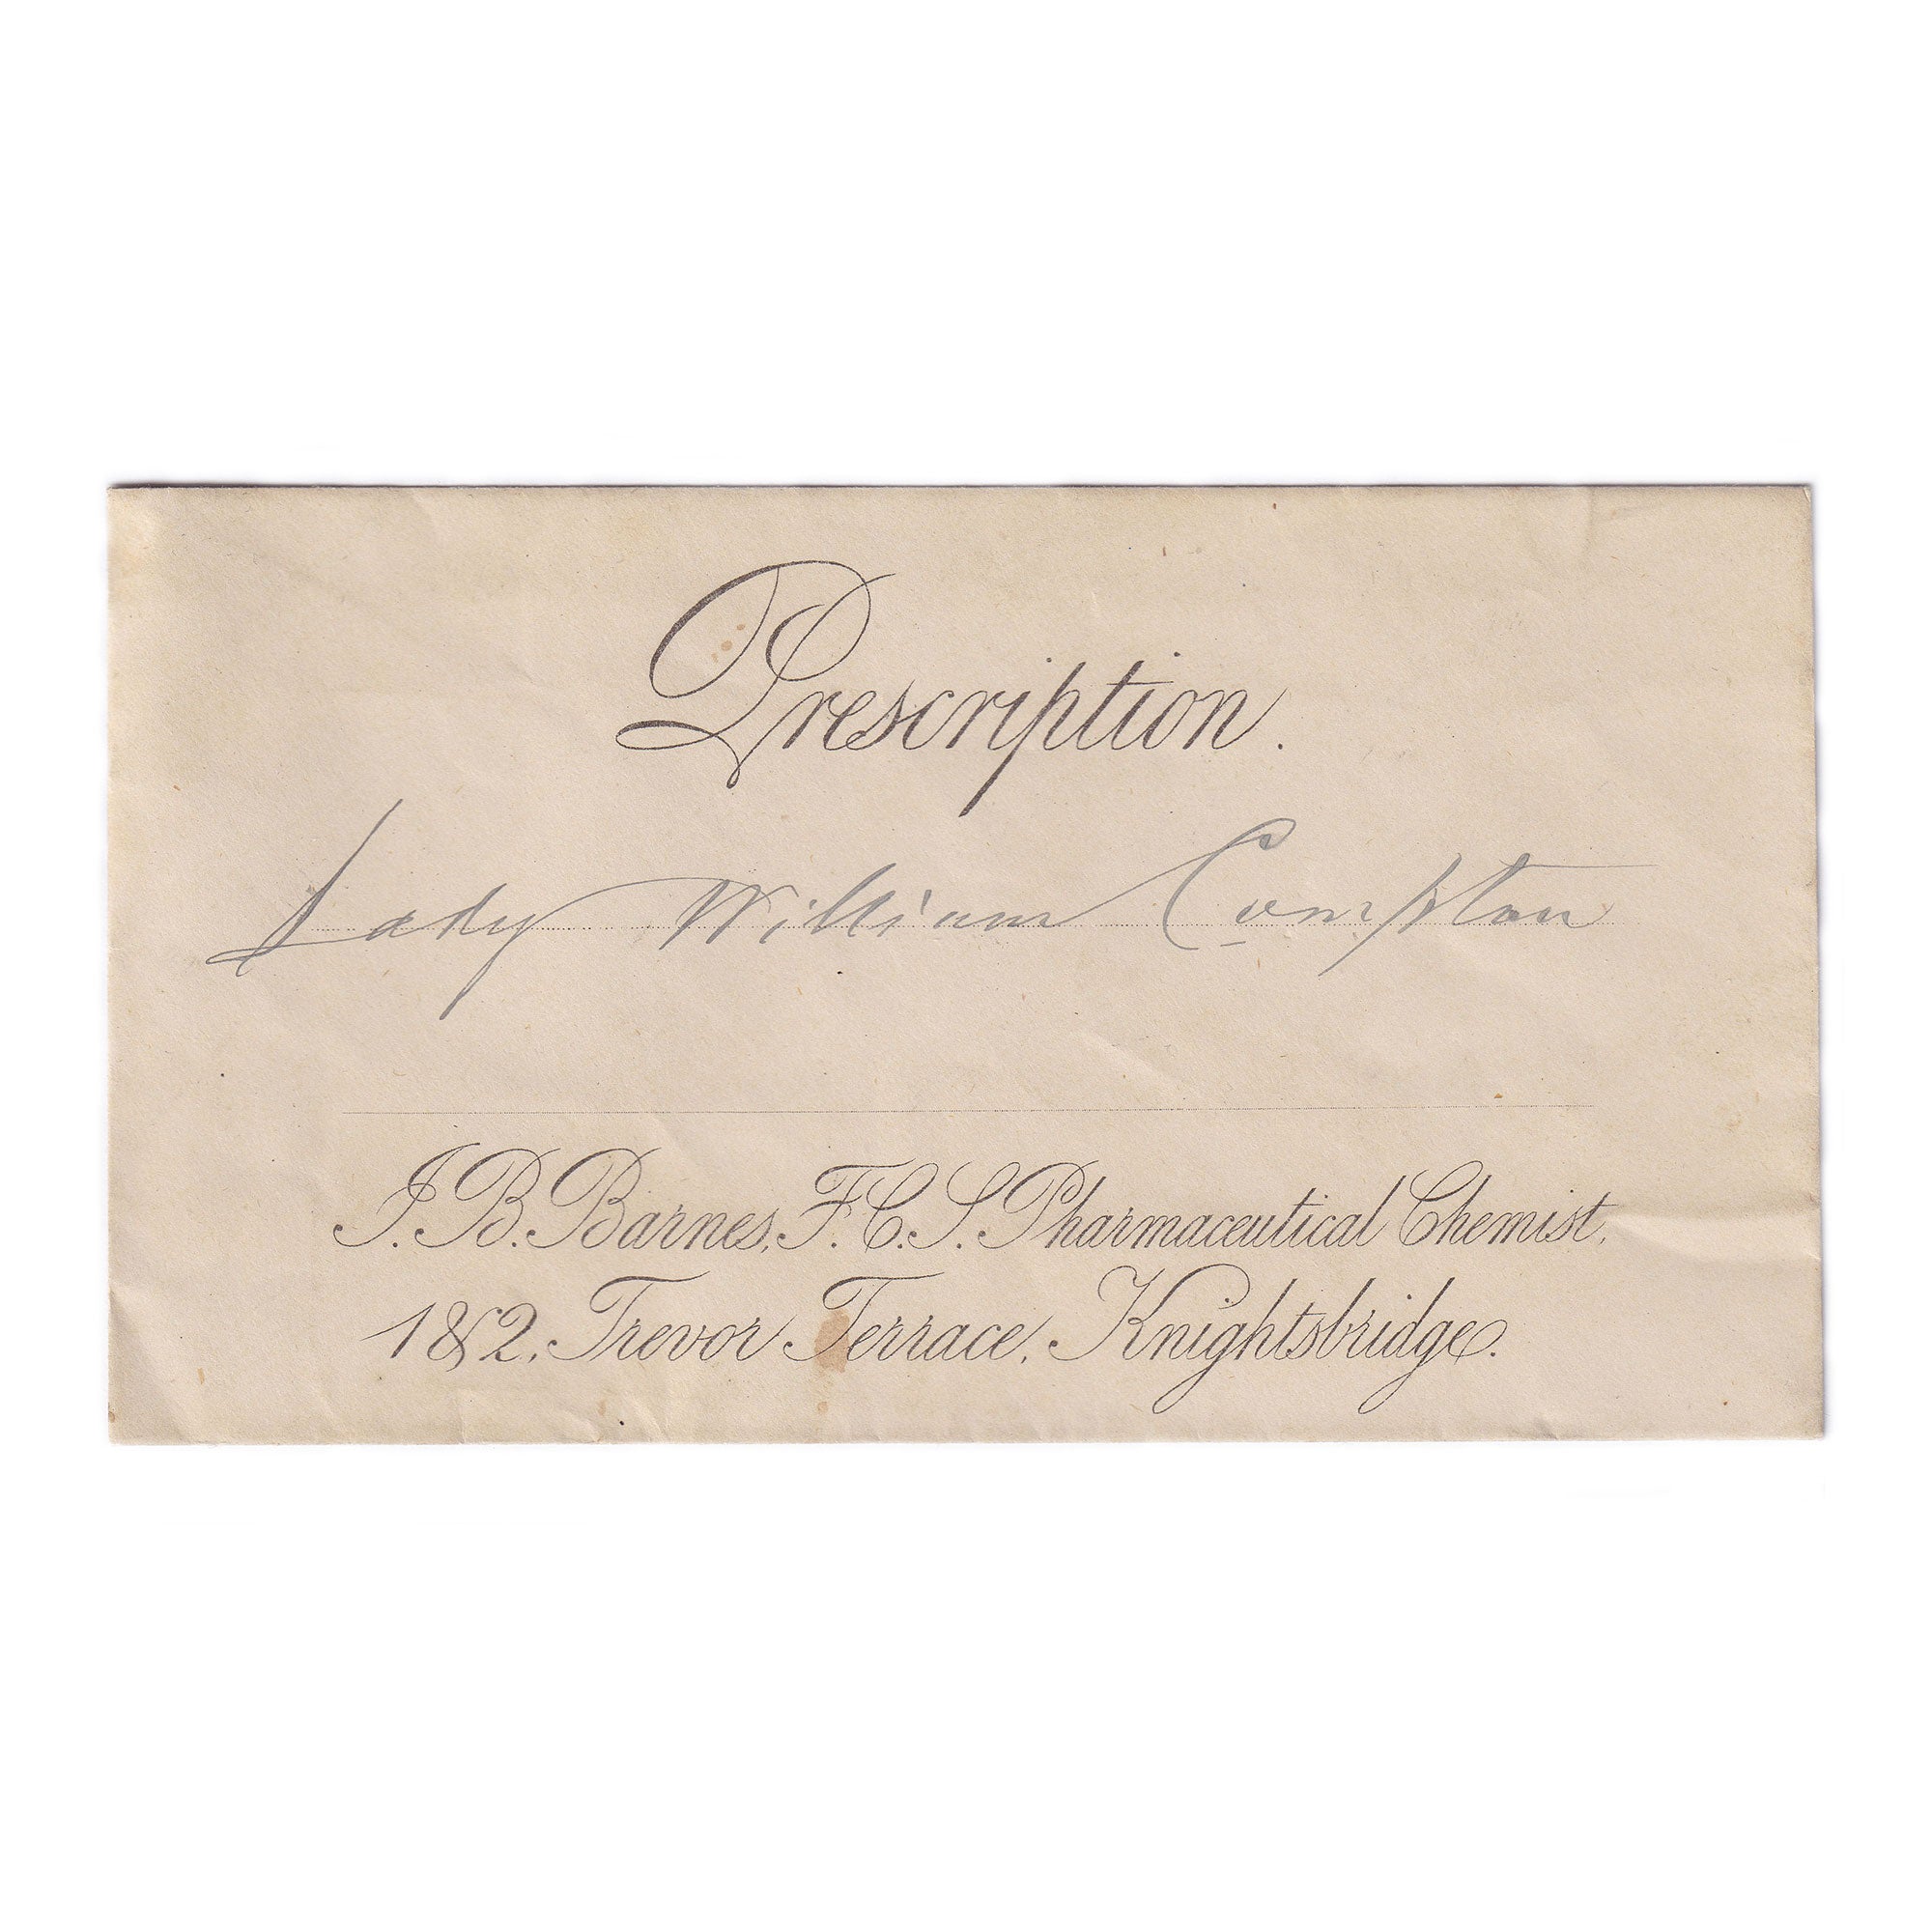 Prescription.
Lady William Compton
J. B. Barnes, F. C. S. Pharmaceutical Chemist,
1 & 2, Trevor Terrace, Knightsbridge.